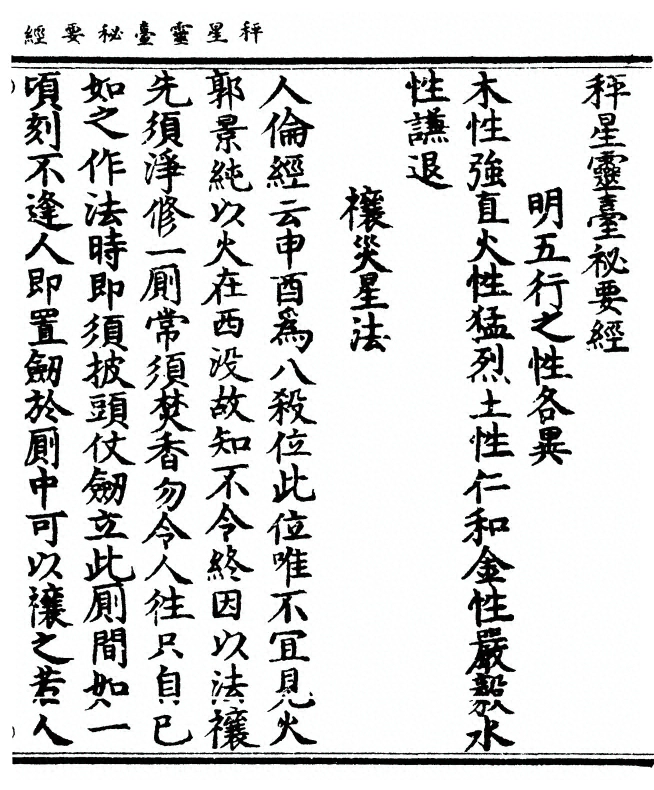 秤星靈臺祕要經
秤星靈臺祕要經
明五行之性各異
木性強直火性猛烈土性仁和金性嚴毅水
性謙退
禳災星法
人倫經云申酉爲八殺位此位唯不冝見火
郭景純以火在西没故知不令終因以法禳
先須淨修一厠常須焚香勿令人徃只自已
如之作法時即須披頭仗劒立此厠間如一
頃刻不逢人即置劒於厠中可以禳之若人